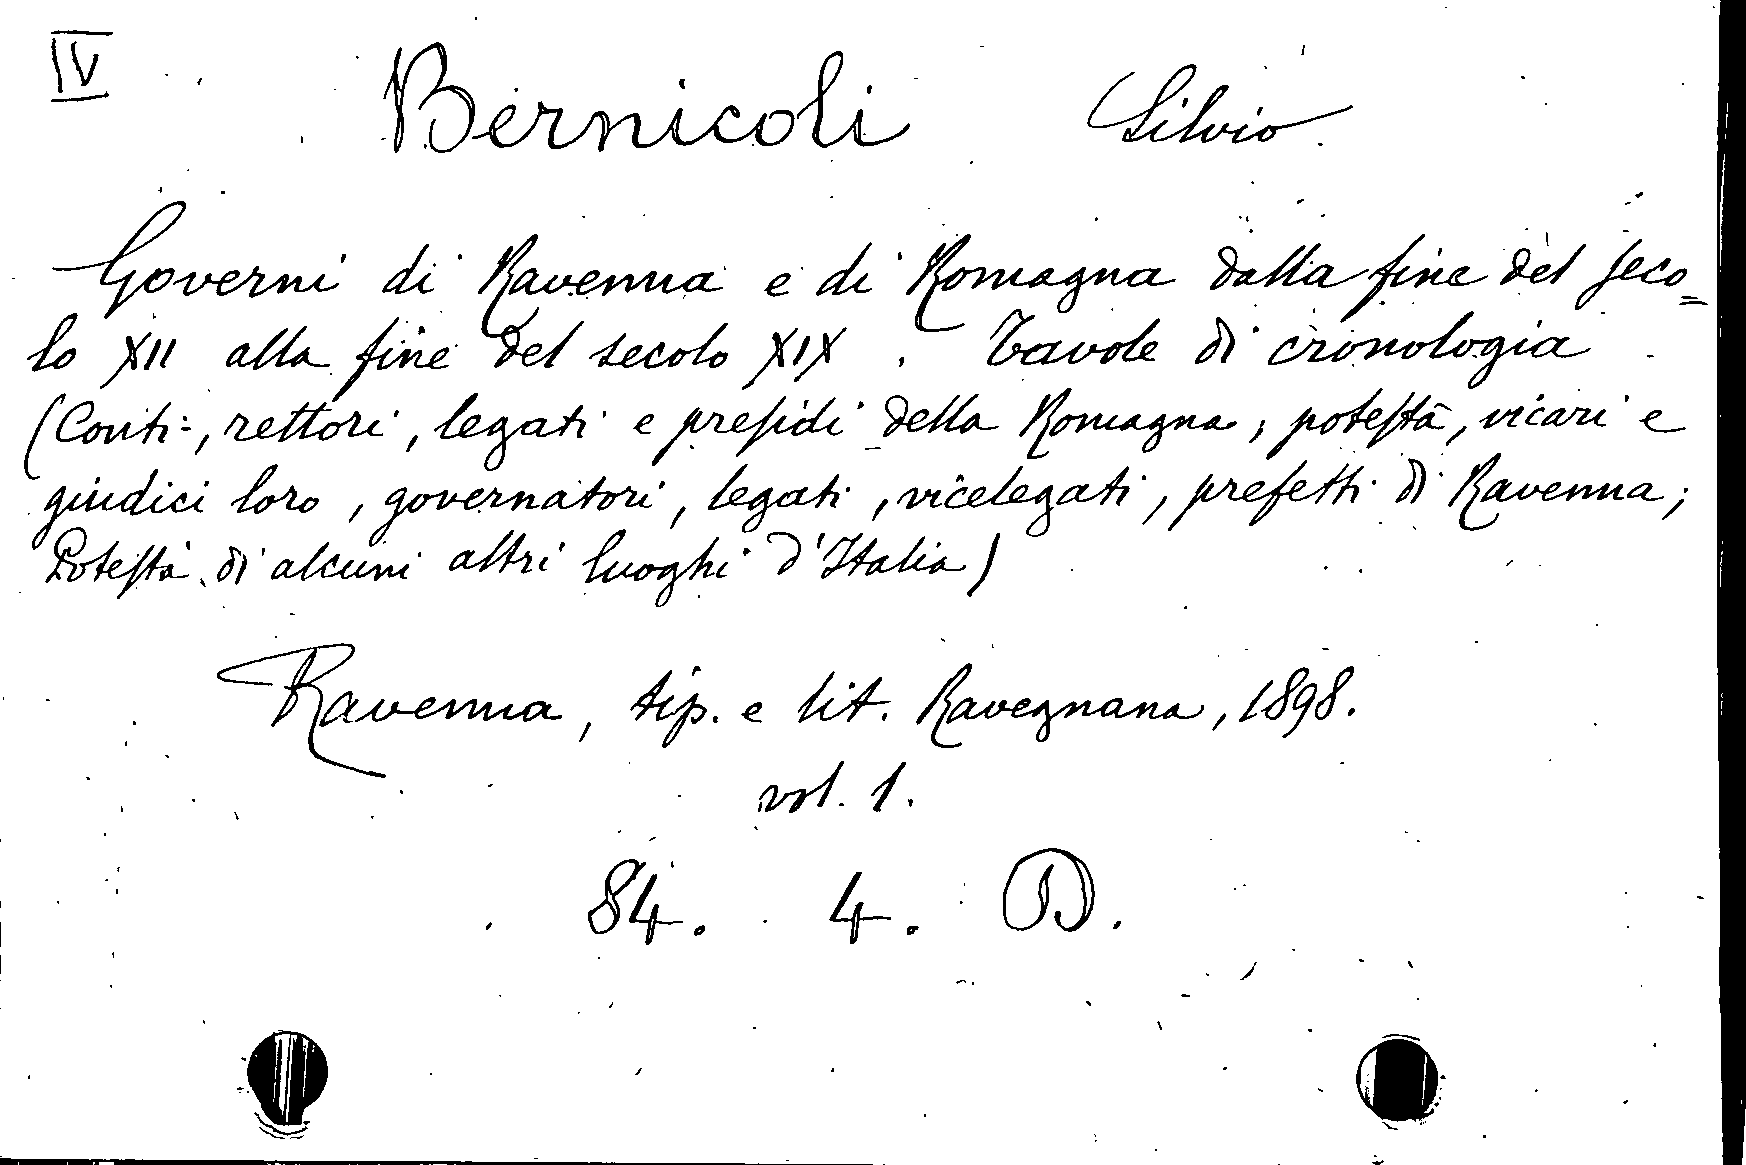 IV
Bernicoli Silvio.
Governi di Ravenna e di Romagna dalla fine del seco=
lo XII alla fine del secolo XIX. Tavole di cronologia
(Conti, rettori, legati e presidi della Romagna; potestà, vicari e
giudici loro, governatori, legati, vicelegati, prefetti di Ravenna;
Potestà di alcuni altri luoghi d'Italia)
Ravenna, tip. e lit. Ravegnana, 1898.
vol. 1.
84. 4. D.